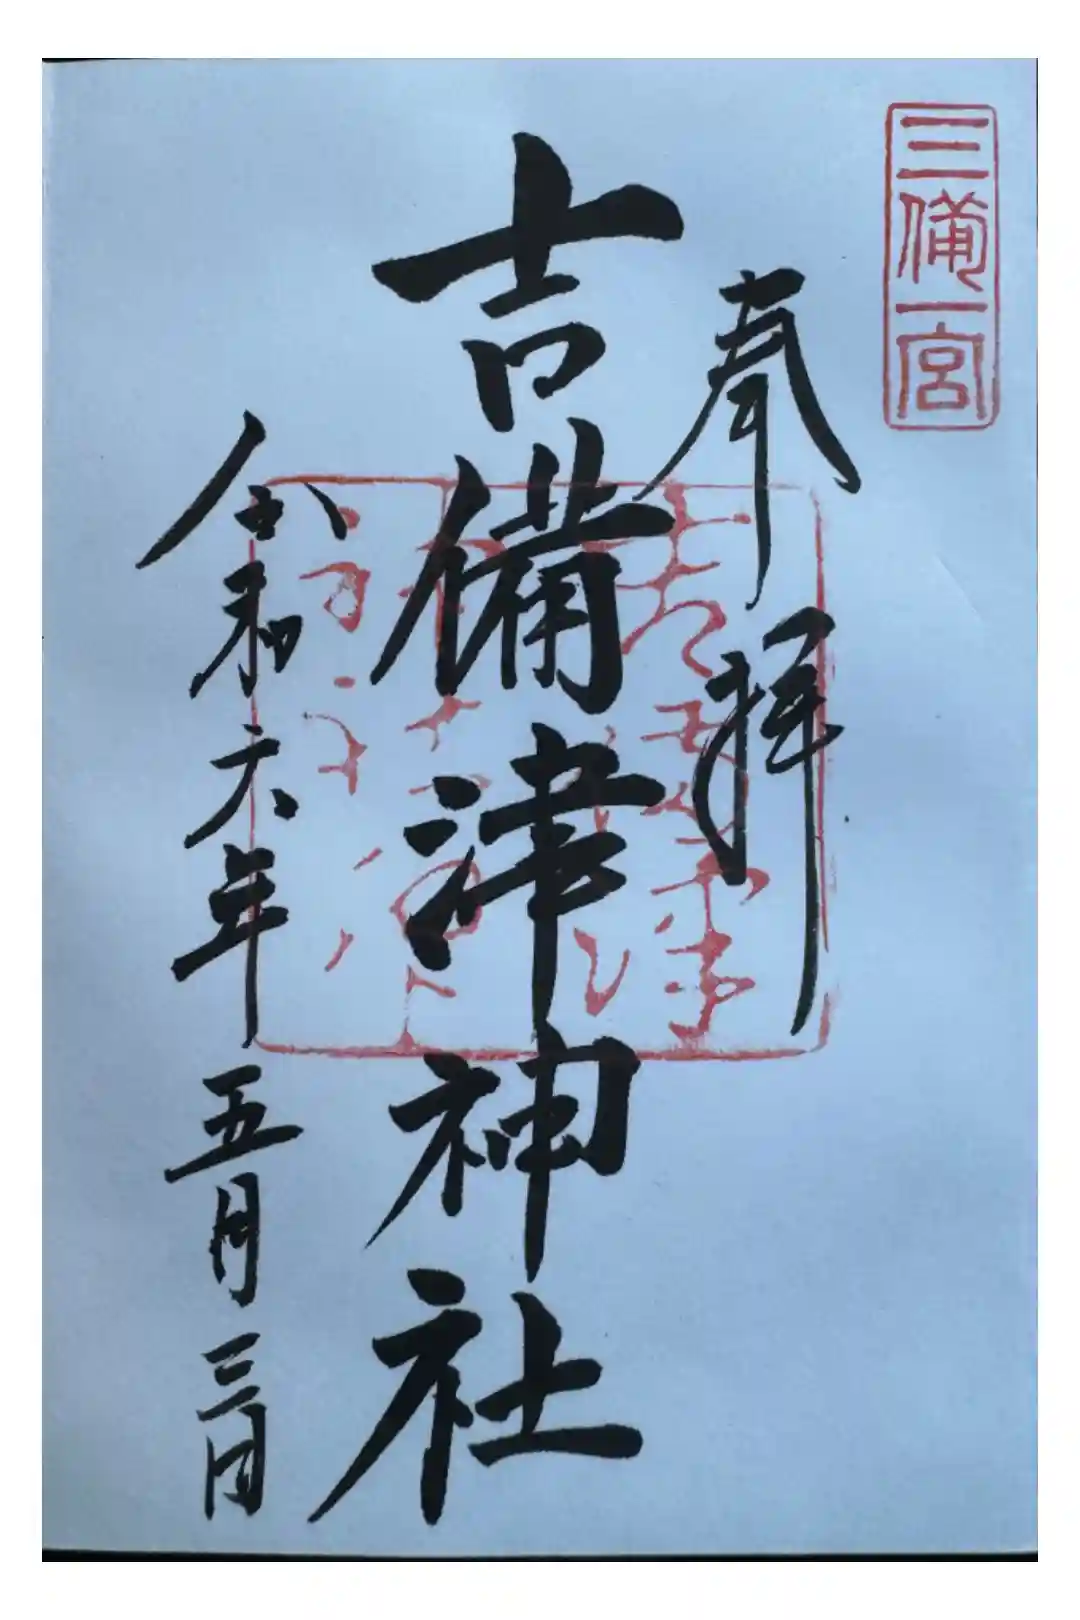 三備一宮
奉拝
吉備津神社
令和六年五月三日